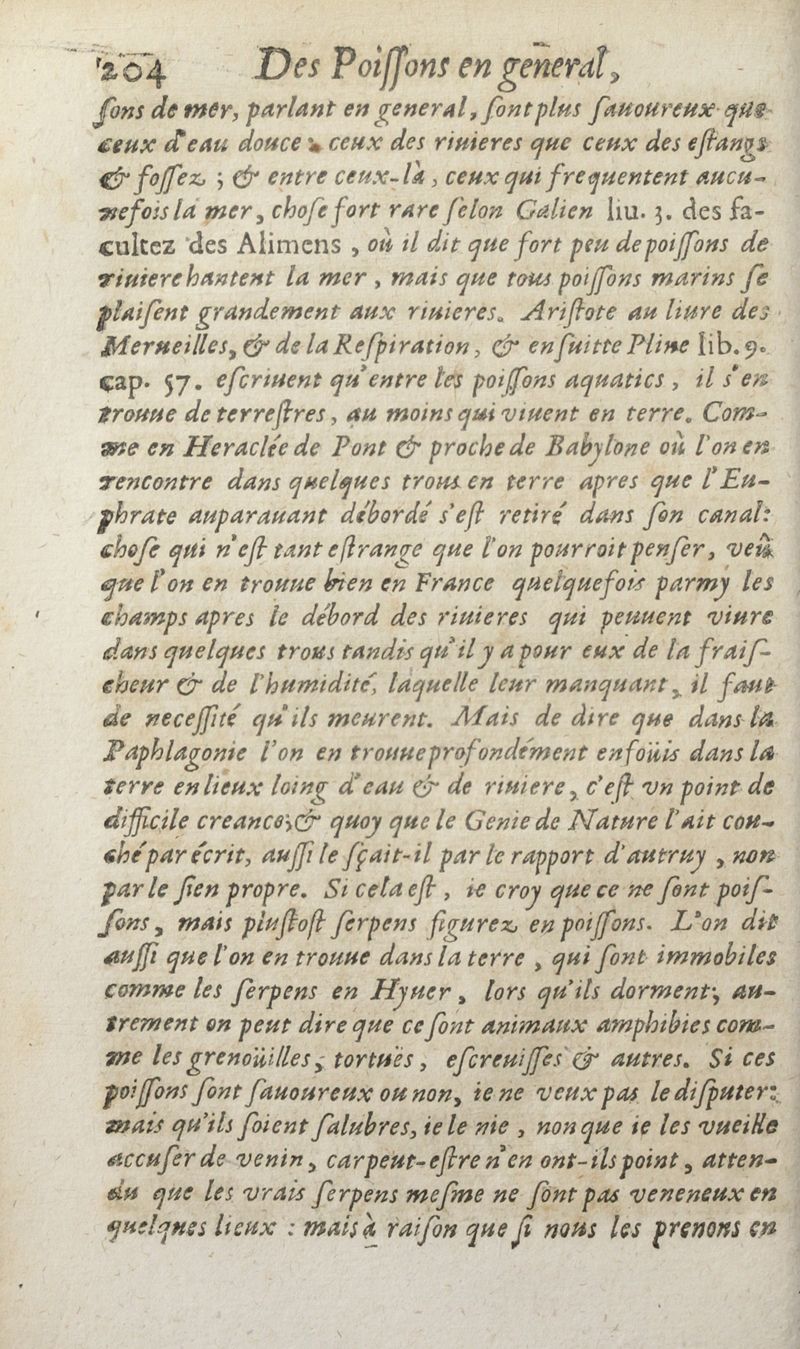 204 Des Poiſſons en general,
ſons de mer, parlant en general, ſont plus ſauoureux que
ceux d'eau douce, ceux des riuieres que ceux des eſtangs
& foſſez ; & entre ceux-là, ceux qui frequentent aucu-
nefois la mer, choſe fort rare ſelon Galien liu. 3. des fa-
cultez des Alimens, où il dit que fort peu de poiſſons de
riuiere hantent la mer, mais que tous poiſſons marins ſe
plaiſent grandement aux riuieres. Ariſtote au liure des
Merueilles, & de la Reſpiration, & enſuitte Pline lib. 9.
cap. 57. eſcriuent qu'entre les poiſſons aquatics, il s'en
trouue de terreſtres, au moins qui viuent en terre. Com-
me en Heraclée de Pont & proche de Babylone où l'on en
rencontre dans quelques trous en terre apres que l'Eu-
phrate auparauant débordé s'eſt retiré dans ſon canal:
choſe qui n'eſt tant eſtrange que l'on pourroit penſer, veû
que l'on en trouue bien en France quelquefois parmy les
champs apres le débord des riuieres qui peuuent viure
dans quelques trous tandis qu'il y a pour eux de la fraiſ-
cheur & de l'humidité, laquelle leur manquant, il faut
de neceſſité qu'ils meurent. Mais de dire que dans la
Paphlagonie l'on en trouue profondément enfoüis dans la
terre en lieux loing d'eau & de riuiere, c'eſt vn point de
difficile creance; & quoy que le Genie de Nature l'ait cou-
ché par écrit, auſſi le ſçait-il par le rapport d'autruy, non
par le ſien propre. Si cela eſt, ie croy que ce ne ſont poiſ-
ſons, mais pluſtoſt ſerpens figurez en poiſſons. L'on dit
auſſi que l'on en trouue dans la terre, qui ſont immobiles
comme les ſerpens en Hyuer, lors qu'ils dorment; au-
trement on peut dire que ce ſont animaux amphibies com-
me les grenoüilles, tortuës, eſcreuiſſes & autres. Si ces
poiſſons ſont ſauoureux ou non, ie ne veux pas le diſputer:
mais qu'ils ſoient ſalubres, ie le nie, non que ie les vueille
accuſer de venin, car peut-eſtre n'en ont-ils point, atten-
du que les vrais ſerpens meſme ne ſont pas veneneux en
quelques lieux : mais à raiſon que ſi nous les prenons en